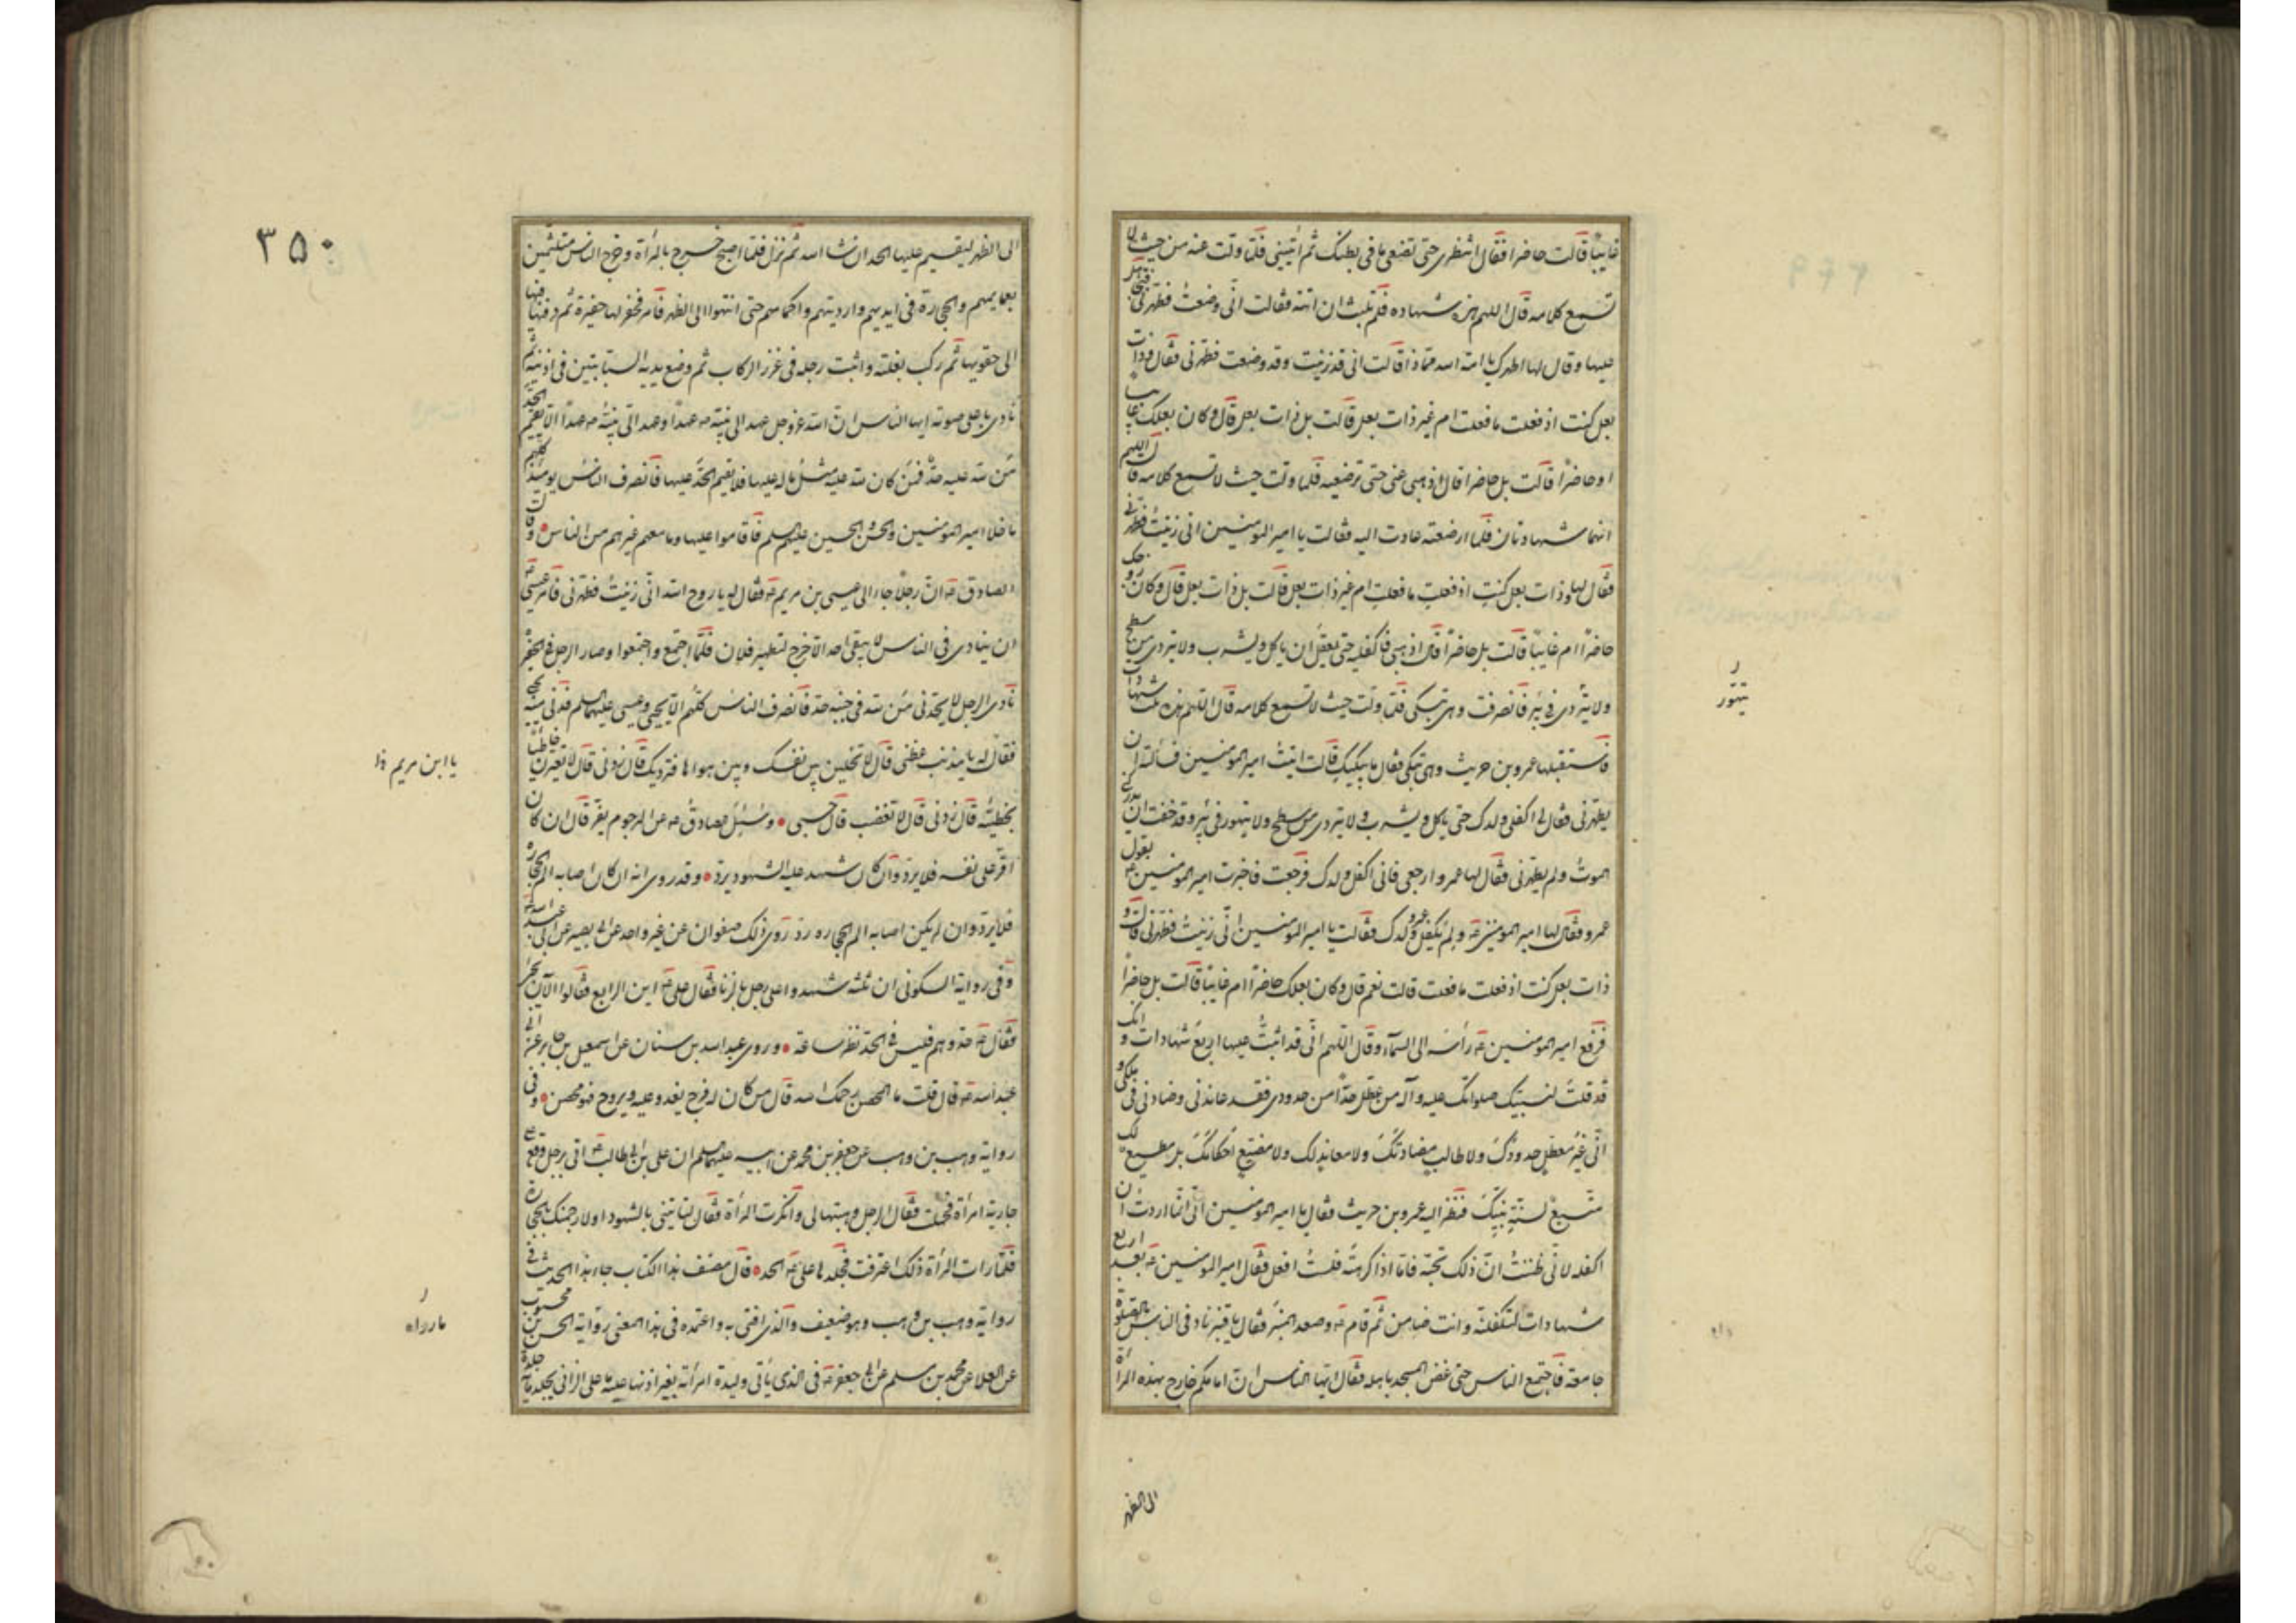 غايبًا قالت حاضرا فقال انتظرى حتى تضعى ما فى بطنك ثم ائتينى فلما ولت عنه من حيث لا
تسمع كلامه قال اللهم هذه شهادة فلم تلبث ان اتته فقالت انى وضعت فطهرنى فتجاهل
عليها وقال لها اطهرك يا امة الله مماذا قالت انى قد زنيت وقد وضعت فطهرنى فقال وذات
بعل كنت اذ فعلت ما فعلت ام غير ذات بعل قالت بل ذات بعل قال وكان بعلك غايبا
او حاضرًا قالت بل حاضرا قال اذهبى عنى حتى ترضعيه فلما ولت حيث لا تسمع كلامه قال اللهم
انهما شهادتان فلما ارضعته عادت اليه فقالت يا امير المومنين انى زنيت فطهرنى
فقال لها وذات بعل كنت اذ فعلت ما فعلت ام غير ذات بعل قالت بل ذات بعل قال وكان زوجك
حاضرًا ام غايبًا قالت بل حاضرًا قال اذهبى فاكفليه حتى يعقل ان ياكل ويشرب ولا يتردى من سطح
ولا يتردى فى بئر فانصرفت وهى تبكى فلما ولت حيث لا تسمع كلامه قال اللهم هذه ثلث شهادات
فاستقبلها عمرو بن حريث وهى تبكى فقال ما يبكيك قالت اتيت امير المومنين فسألته ان
يطهرنى فقال لى اكفلى ولدك حتى ياكل ويشرب ولا يتردى من سطح ولا يتهور فى بئر وقد خفت ان يدركنى
الموت ولم يطهرنى فقال لها عمرو ارجعى فانى اكفل ولدك فرجعت فاخبرت امير المومنين ع بقول
عمرو فقال لها امير المومنين ع ولم يكفل عمرو ولدك فقالت يا امير المومنين انى زنيت فطهرنى قال و
ذات بعل كنت اذ فعلت ما فعلت قالت نعم قال وكان بعلك حاضرًا ام غايبًا قالت بل حاضرًا
فرفع امير المومنين ع رأسه الى السمآء وقال اللهم انى قد اثبت عليها اربع شهادات وانك
قد قلت لنبيك صلواتك عليه وآله من عطل حدًا من حدودى فقد عاندنى وضادنى فى ملكى و
انى غير معطل حدودك ولا طالب مضادتك ولا معاند لك ولا مضيّع احكامك بل مطيع لك
متبع لسنة نبيك فنظر اليه عمرو بن حريث فقال يا امير المومنين انى انما اردت ان
اكفله لانى ظننت ان ذلك تحبه فاما اذا كرهته فلست افعل فقال امير المومنين ع بعد اربع
شهادات لتكفلنه وانت ضامن ثم قام ع وصعد المنبر فقال يا قنبر ناد فى الناس بالصلوة
جامعة فاجتمع الناس حتى غض المسجد باهله فقال ايها الناس ان امامكم خارج بهذه المرأة
الى الظهر
يتهور
٣٥٠
الى الظهر ليقيم عليها الحد ان شا الله ثم نزل فلما اصبح خرج بالمرأة وخرج الناس متلثمين
بعمايمهم والحجارة فى ايديهم وارديتهم واكمامهم حتى انتهوا الى الظهر فامر فحفر لها حفيرة ثم دفنها فيها
الى حقويها ثم ركب بغلته واثبت رجله فى غرز الركاب ثم وضع يديه السبابتين فى اذنيه ثم
نادى باعلى صوته ايها الناس ان الله عز وجل عهد الى نبيه ص عهدًا وعهد الى نبيه ص عهدًا الا يقيم الحد
من لله عليه حد فمن كان لله عليه مثل ما له عليها فلا يقيم الحد عليها فانصرف الناس يومئذ كلهم
ما خلا امير المومنين والحسن والحسين عليهم السلم فاقاموا عليها وما معهم غيرهم من الناس وقال
الصادق ع ان رجلًا جاء الى عيسى بن مريم ع فقال له يا روح الله انى زنيت فطهرنى فامر عيسى ع
ان ينادى فى الناس لا يبقى احد الا خرج لتطهير فلان فلما اجتمع واجتمعوا وصار الرجل فى الحفر
نادى الرجل لا يحدنى من لله فى جنبه حد فانصرف الناس كلهم الا يحيى وعيسى عليهما السلم فدنى منه يحيى
فقال له يا مذنب عظنى قال لا تخلين بين نفسك وبين هواها فترديك قال زدنى قال لا تعيرن خاطئا
بخطيئته قال زدنى قال لا تغضب قال حسبى وسئل الصادق ع عن المرجوم يفر قال ان كان
اقر على نفسه فلا يرد وان كان شهد عليه الشهود يرد وقد روى انه ان كان اصابه الم الحجارة
فلا يرد وان لم يكن اصابه الم الحجارة رد روى ذلك صفوان عن غير واحد عن ابى بصير عن ابى عبد الله ع
وفى رواية السكونى ان ثلثة شهدوا على رجل بالزنا فقال على ع اين الرابع فقالوا الآن يجئ
فقال ع حدوهم فليس فى الحد نظر ساعة وروى عبد الله بن سنان عن اسمعيل بن جابر عن ابى
عبد الله ع قال قلت ما المحصن رحمك الله قال من كان له فرج يغدو عليه ويروح فهو محصن وفى
رواية وهب بن وهب عن جعفر بن محمد عن ابيه عليهما السلم ان على بن ابى طالب ع اتى برجل وقع على
جارية امرأة فحملت فقال الرجل وهبتها لى وانكرت المرأة فقال لتاتينى بالشهود او لارجمنك بالحجارة
فلما رات المرأة ذلك اعترفت فجلدها على ع الحد قال مصنف هذا الكتاب جاء هذا الحديث فى
رواية وهب بن وهب وهو ضعيف والذى افتى به واعتمده فى هذا المعنى رواية الحسن بن محبوب
عن العلا عن محمد بن مسلم عن ابى جعفر ع فى الذى يأتى وليدة امرأته بغير اذنها عليه ما على الزانى يجلد مائة جلدة
يا ابن مريم
ما رواه